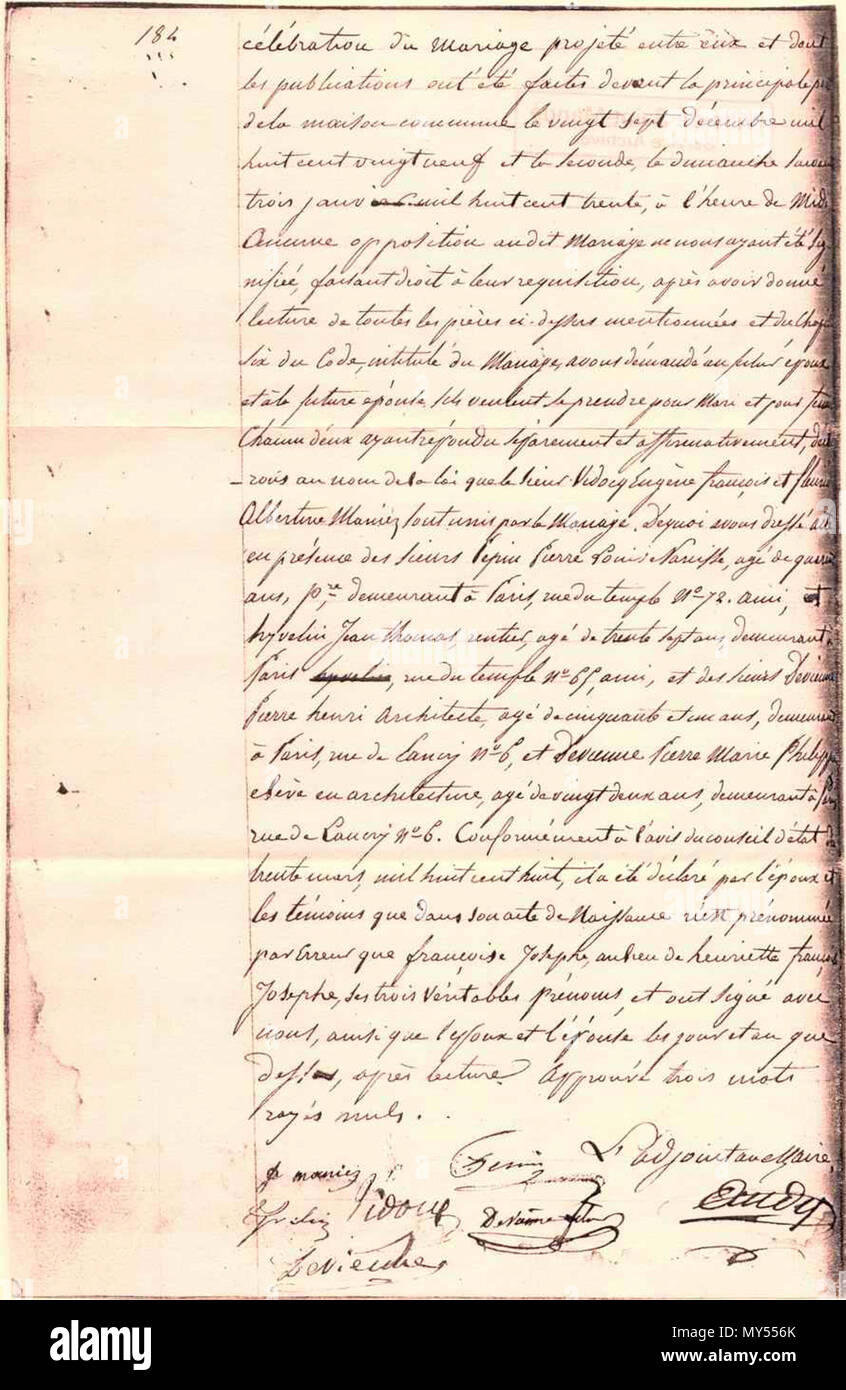 184
célébration du Mariage projeté entre eux et dont
les publications ont été faites devant la principale
de la maison commune le vingt sept décembre mil
huit cent vingt neuf et la seconde, le dimanche
trois janvier mil huit cent trente, à l'heure de Midi
Aucune opposition audit Mariage ne nous ayant été sig
nifiée, faisant droit à leur requisition, après avoir donné
lecture de toutes les pièces ci-dessus mentionnées et du Chap
six du Code, intitulé du Mariage, avons demandé au futur époux
et à la future épouse s'ils veulent se prendre pour Mari et pour
Chacun d'eux ayant répondu séparément et affirmativement,
rons au nom de la loi que le sieur Vidocq Eugène françois et fleuri
Albertine Maniez sont unis par le Mariage. De quoi avons dressé
en présence des sieurs Pepin Pierre Louis Narcisse, agé de
ans, pre demeurant à Paris, rue du temple No 72. ami, et
hyvelin Jean thomas rentier, agé de trente sept ans, demeurant à
Paris hyvelin, rue du temple No 65, ami, et des sieurs Devienne
Pierre henri Architecte, agé de cinquante et un ans, demeurant
à Paris, rue de Lancry No 6, et Devienne Pierre Marie Philippe
élève en architecture, agé de vingt deux ans, demeurant à
rue de Lancry No 6. Conformément à l'avis du conseil d'état du
trente mars, mil huit cent huit, il a été déclaré par l'époux et
les témoins que dans son acte de Naissance n'est prénommée
par Erreur que françoise Josephe, au lieu de henriette françoise
Josephe, ses trois véritables prénoms, et ont signé avec
nous, ainsi que l'époux et l'épouse les jour et an que
dessus, après lecture. Approuvé trois mots
rayés nuls.
L'adjoint au Maire,
f maniez
Vidocq
Devienne
alamy
a
alamy stock photo
MY556K